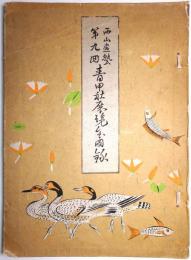 西山画塾
第九回 青甲社展覧会図録